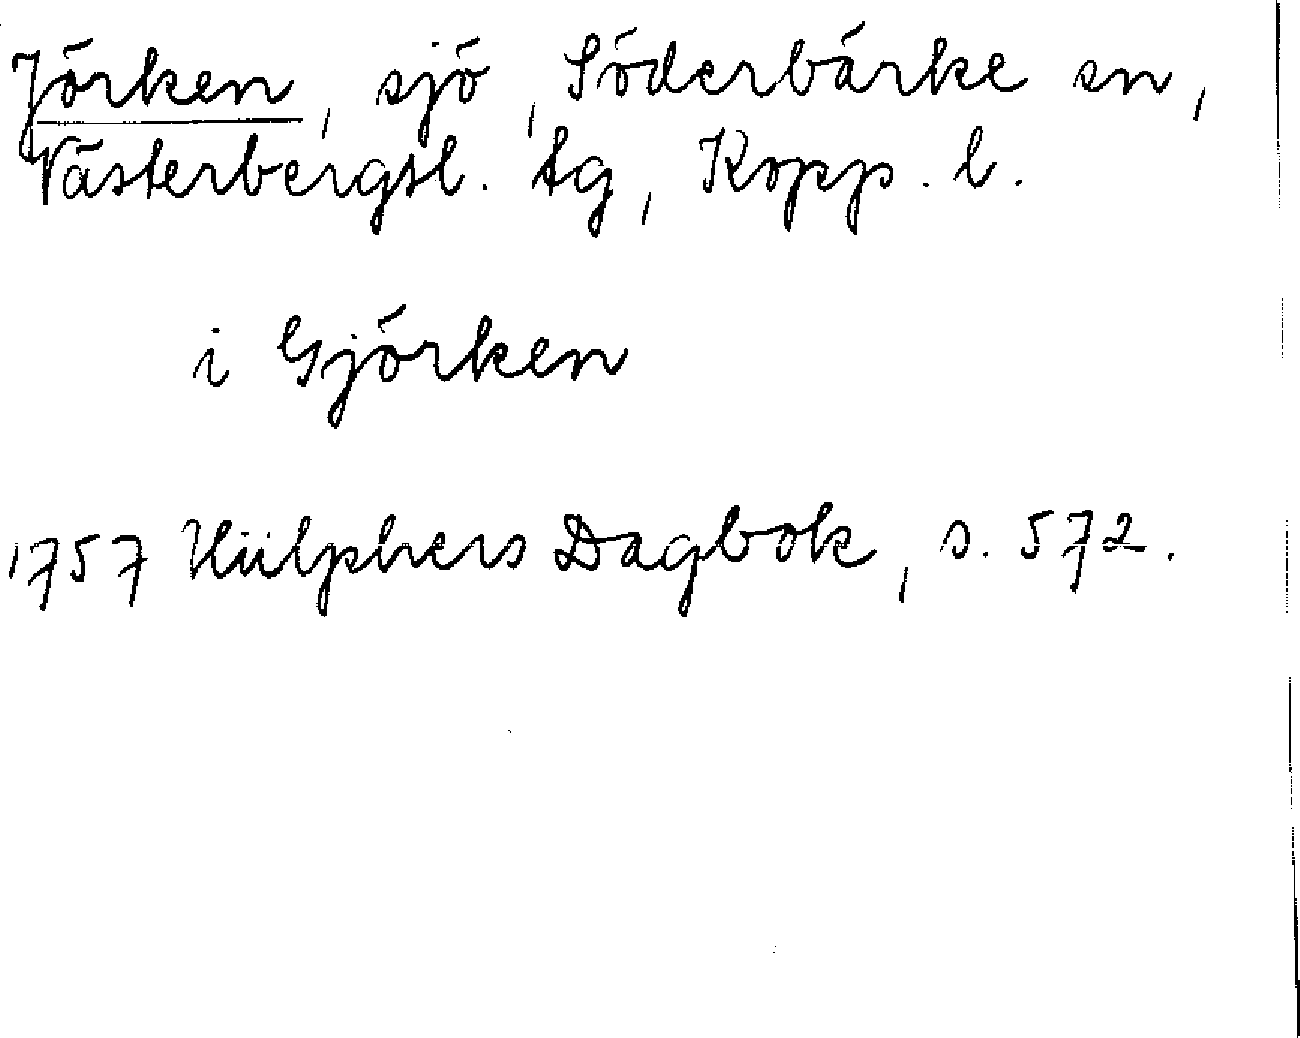 Jörken, sjö, Söderbärke sn,
Västerbergsl. tg, Kopp. l.
i Gjörken
1757 Hülphers Dagbok, s. 572.